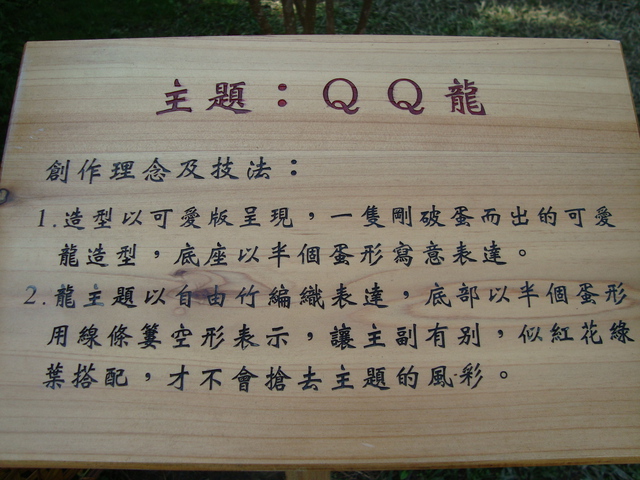 主題：QQ龍
創作理念及技法：
1.造型以可愛版呈現，一隻剛破蛋而出的可愛
龍造型，底座以半個蛋形寫意表達。
2.龍主題以自由竹編織表達，底部以半個蛋形
用線條簍空形表示，讓主副有别，似紅花綠
葉搭配，才不會搶去主題的風彩。